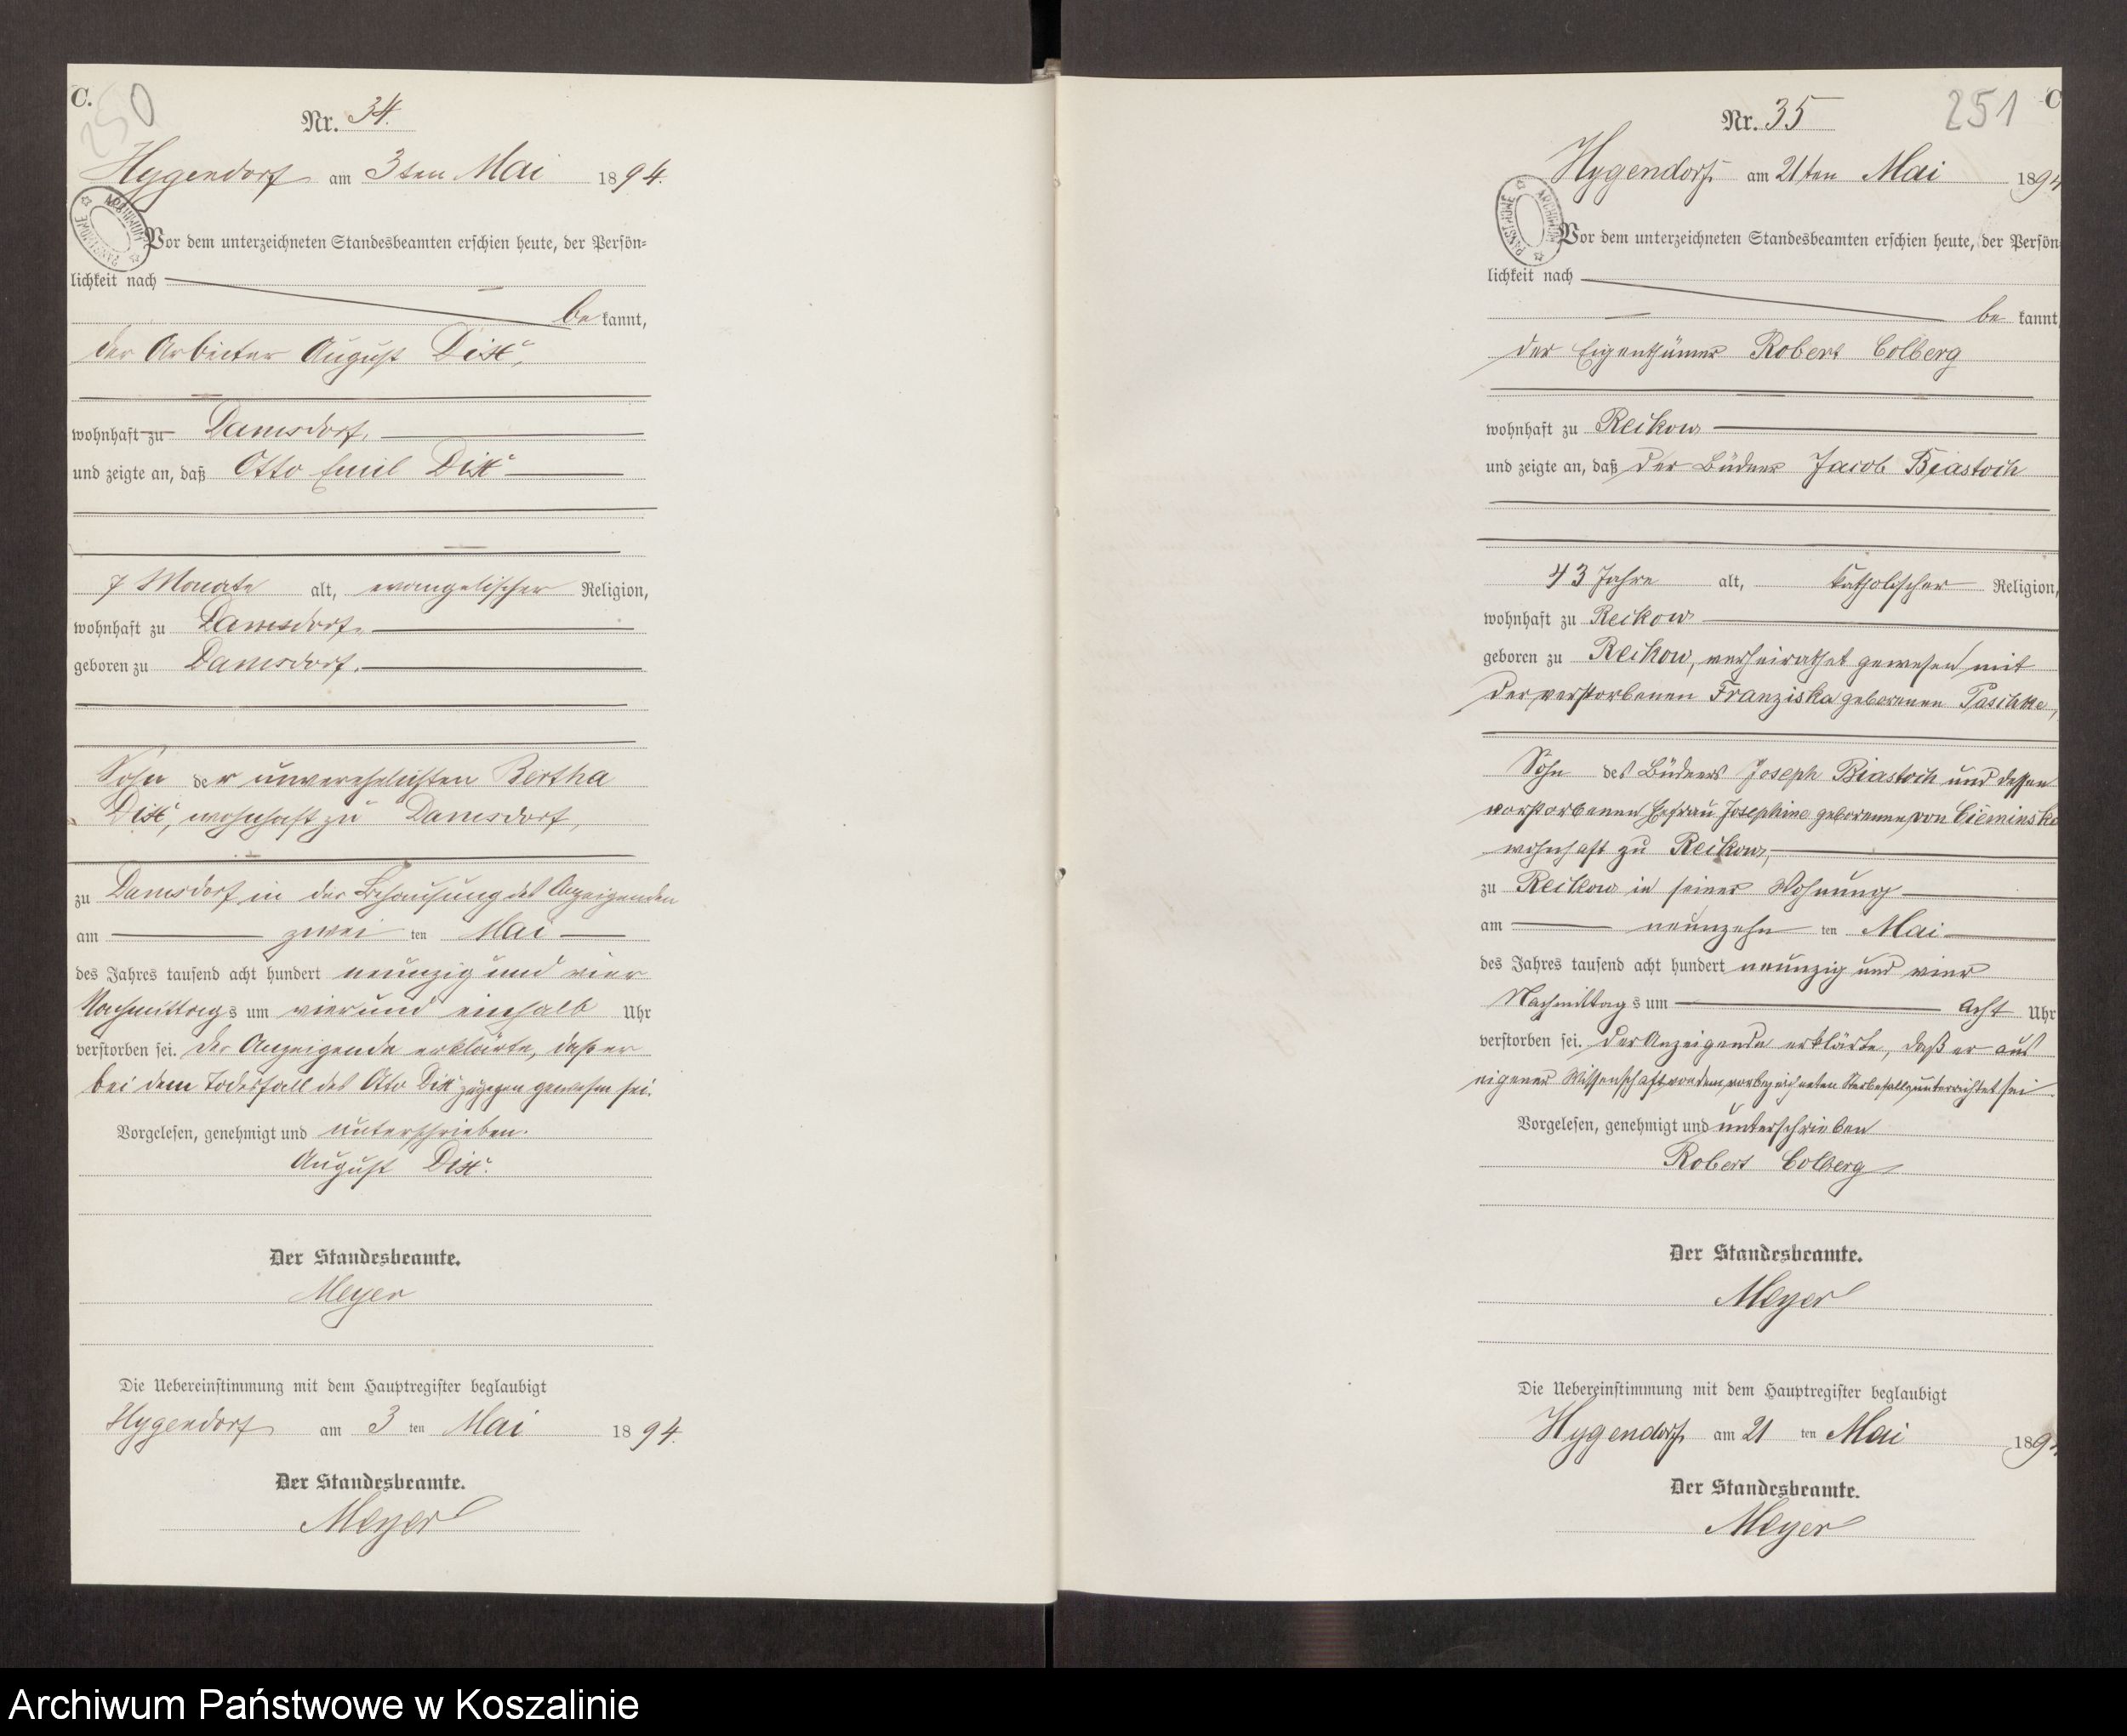 C.
250
Nr. 34.
Hygendorf am 3ten Mai 1894.
ARCHIWUM PAŃSTWOWE
Vor dem unterzeichneten Standesbeamten erschien heute, der Persön-
lichkeit nach
be kannt,
der Arbeiter August
wohnhaft zu Damsdorf,
und zeigte an, daß Otto Emil
7 Monate alt, evangelischer Religion,
wohnhaft zu Damsdorf,
geboren zu Damsdorf,
Sohn der unverehelichten Bertha
wohnhaft zu Damsdorf,
zu Damsdorf in der Behausung des Anzeigenden
am zwei ten Mai
des Jahres tausend acht hundert neunzig und vier
Nachmittags um vier und einhalb Uhr
verstorben sei. Der Anzeigende erklärte, daß er
bei dem Todesfall des Otto zugegen gewesen sei.
Vorgelesen, genehmigt und unterschrieben.
August
Der Standesbeamte.
Meyer
Die Uebereinstimmung mit dem Hauptregister beglaubigt
Hygendorf am 3 ten Mai 1894.
Der Standesbeamte.
Meyer
251
C
Nr. 35
Hygendorf am 21ten Mai 1894
ARCHIWUM PAŃSTWOWE
Vor dem unterzeichneten Standesbeamten erschien heute, der Persön
lichkeit nach
be kannt,
der Eigenthümer Robert Colberg
wohnhaft zu Reikow
und zeigte an, daß der Büdner Jacob Biastoch
43 Jahre alt, katholischer Religion,
wohnhaft zu Reikow
geboren zu Reikow, verheirathet gewesen mit
der verstorbenen Franziska geborenen Paschke,
Sohn des Büdners Joseph Biastoch und dessen
verstorbenen Ehefrau Josephine geborenen von Cieminski
wohnhaft zu Reikow,
zu Reikow in seiner Wohnung
am neunzehn ten Mai
des Jahres tausend acht hundert neunzig und vier
Nachmittags um acht Uhr
verstorben sei. Der Anzeigende erklärte, daß er aus
eigener Wissenschaft von dem vorbezeichneten Sterbefalle unterrichtet sei
Vorgelesen, genehmigt und unterschrieben
Robert Colberg
Der Standesbeamte.
Meyer
Die Uebereinstimmung mit dem Hauptregister beglaubigt
Hygendorf am 21 ten Mai 189
Der Standesbeamte.
Meyer
Archiwum Państwowe w Koszalinie